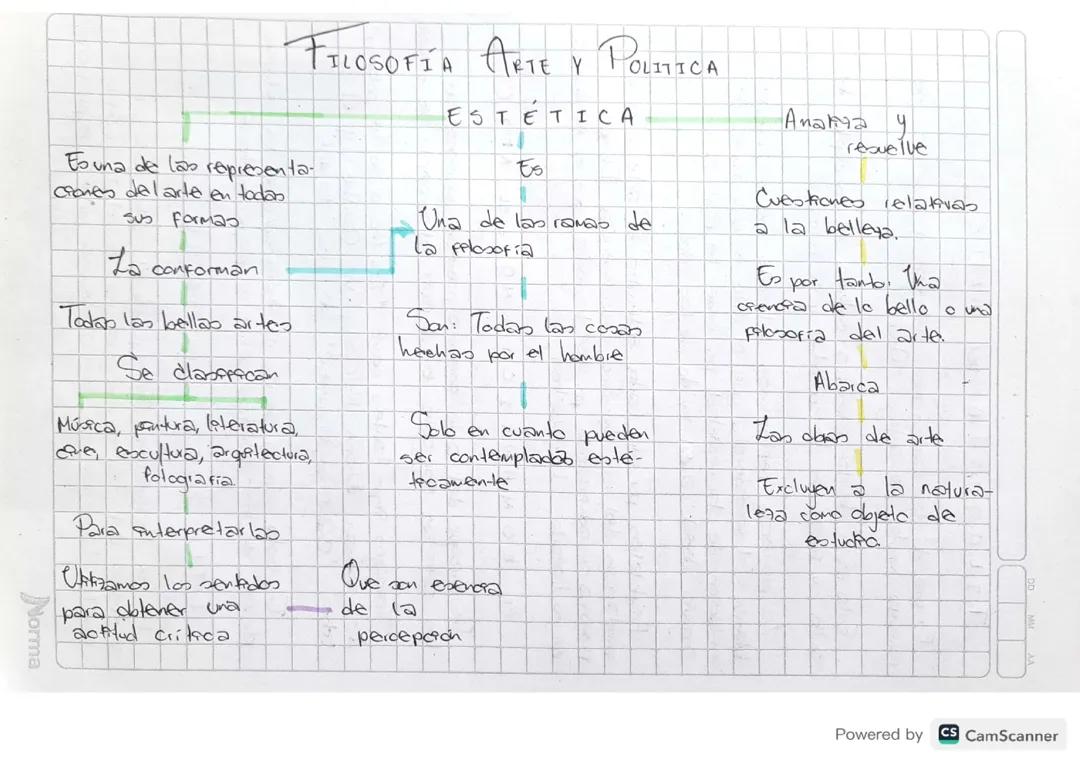 FILOSOFÍA ARTE Y POLITICA
ESTÉTICA
Es una de las representa-
ciones del arte en todas
sus formas
La conforman
Todas las bellas artes
Se clasifican
Música, pintura, literatura,
cine, escultura, arquitectura,
fotografía.
Para interpretarlas
Utilizamos los sentidos
para obtener una
actitud crítica
Que son esencia
de la
percepción
Es
Una de las ramas de
la filosofía
Son: Todas las cosas
hechas por el hombre
Solo en cuanto pueden
ser contempladas esté-
ticamente
Analiza y
resuelve
Cuestiones relativas
a la belleza.
Es por tanto: Una
ciencia de lo bello o una
filosofía del arte.
Abarca
Las obras de arte
Excluyen a la natura-
leza como objeto de
estudio.
Norma
DD
MM
AA
Powered by CS CamScanner